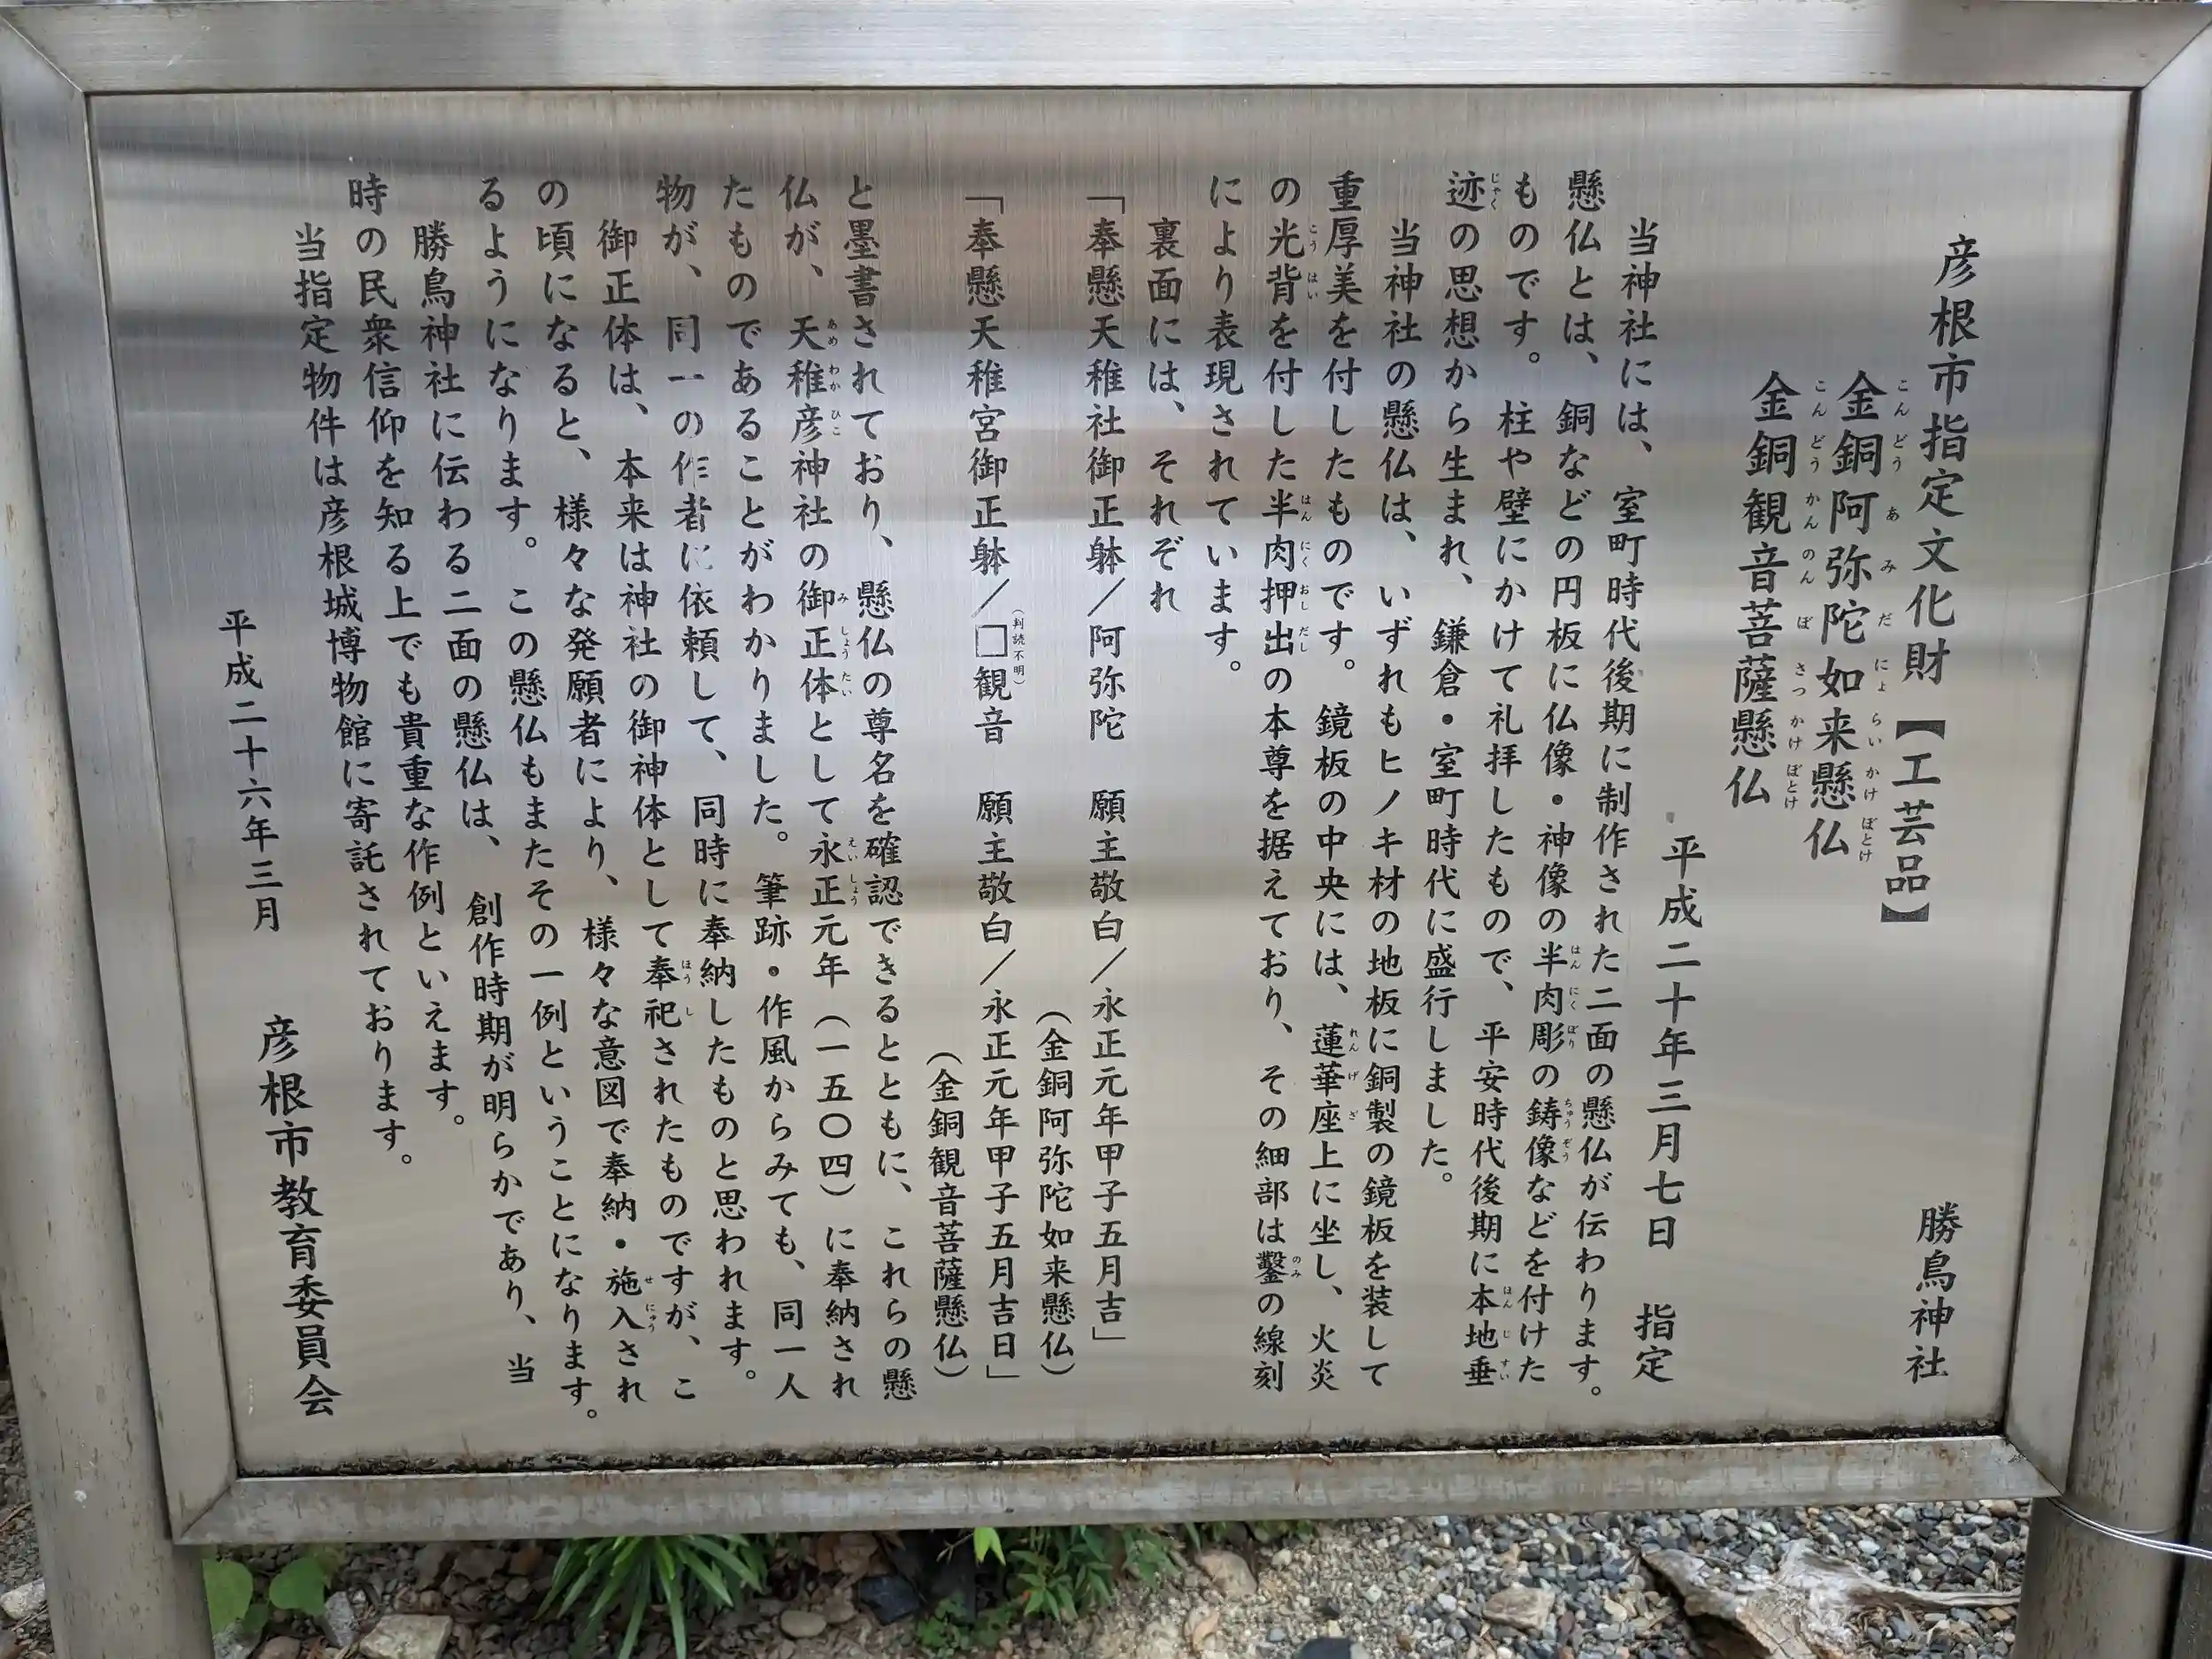 彦根市指定文化財【工芸品】
勝鳥神社
金銅阿弥陀如来懸仏
こんどうあみだにょらいかけぼとけ
金銅観音菩薩懸仏
こんどうかんのんぼさつかけぼとけ
平成二十年三月七日 指定
当神社には、室町時代後期に制作された二面の懸仏が伝わります。
懸仏とは、銅などの円板に仏像・神像の半肉彫の鋳像などを付けた
はんにくぼり ちゅうぞう
ものです。柱や壁にかけて礼拝したもので、平安時代後期に本地垂
ほんじすい
迹の思想から生まれ、鎌倉・室町時代に盛行しました。
じゃく
当神社の懸仏は、いずれもヒノキ材の地板に銅製の鏡板を装して
重厚美を付したものです。鏡板の中央には、蓮華座上に坐し、火炎
れんげざ
の光背を付した半肉押出の本尊を据えており、その細部は鑿の線刻
こうはい はんにくおしだし のみ
により表現されています。
裏面には、それぞれ
「奉懸天稚社御正躰／阿弥陀 願主敬白／永正元年甲子五月吉」
（金銅阿弥陀如来懸仏）
「奉懸天稚宮御正躰／□観音 願主敬白／永正元年甲子五月吉日」
（判読不明）
（金銅観音菩薩懸仏）
と墨書されており、懸仏の尊名を確認できるとともに、これらの懸
仏が、天稚彦神社の御正体として永正元年（一五〇四）に奉納され
あめわかひこ みしょうたい えいしょう
たものであることがわかりました。筆跡・作風からみても、同一人
物が、同一の作者に依頼して、同時に奉納したものと思われます。
御正体は、本来は神社の御神体として奉祀されたものですが、こ
ほうし
の頃になると、様々な発願者により、様々な意図で奉納・施入され
せにゅう
るようになります。この懸仏もまたその一例ということになります。
勝鳥神社に伝わる二面の懸仏は、創作時期が明らかであり、当
時の民衆信仰を知る上でも貴重な作例といえます。
当指定物件は彦根城博物館に寄託されております。
平成二十六年三月
彦根市教育委員会